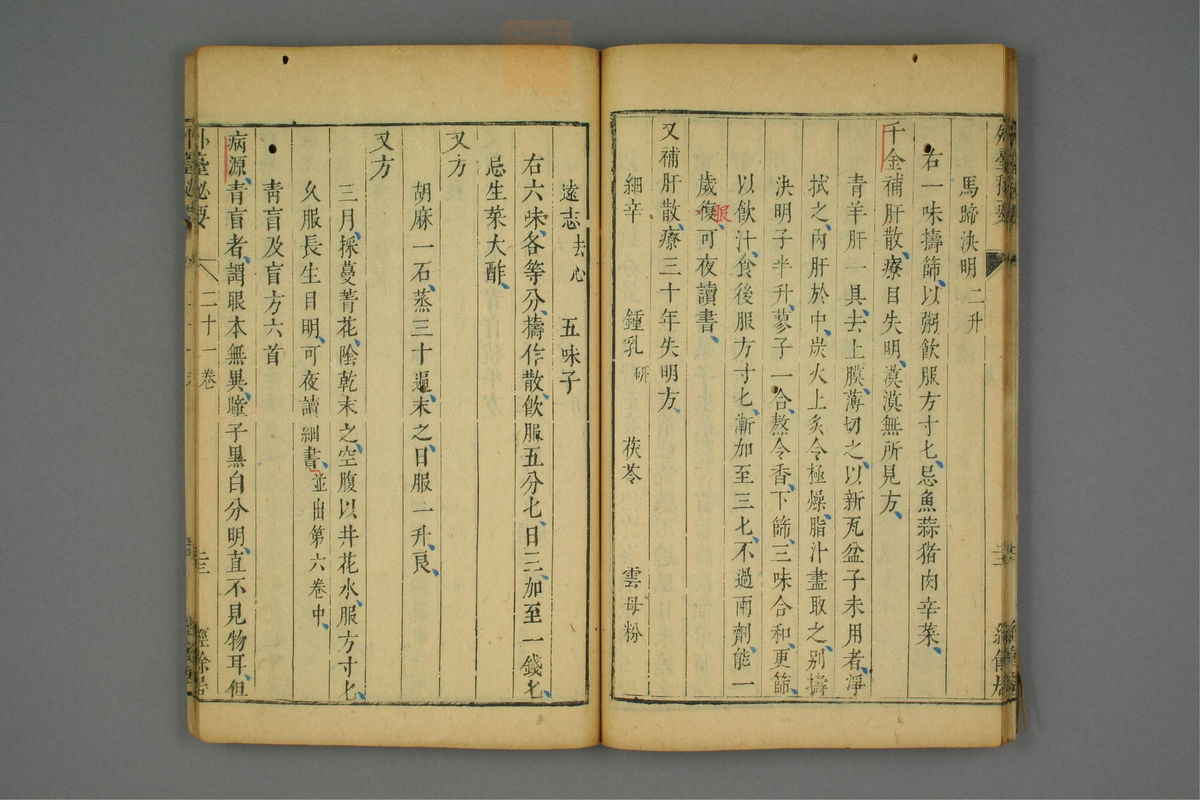 馬蹄決明二升
右一味擣篩以粥飲服方寸匕忌魚蒜猪肉辛菜
千金補肝散療目失明漠漠無所見方
青羊肝一具去上膜薄切之以新瓦盆子未用者淨
拭之內肝於中炭火上炙令極燥脂汁盡取之別擣
決明子半升蓼子一合熬令香下篩三味合和更篩
以飲汁食後服方寸匕漸加至三匕不過兩劑能一
歲復可夜讀書
服
又補肝散療三十年失明方
細辛 鍾乳研 茯苓 雲母粉
遠志去心 五味子
右六味各等分擣作散飲服五分匕日三加至一錢匕
忌生菜大酢
又方
胡麻一石蒸三十遍末之日服一升良
又方
三月採蔓菁花陰乾末之空腹以井花水服方寸匕
久服長生目明可夜讀細書並出第六卷中
青盲及盲方六首
病源青盲者謂眼本無異瞳子黑白分明直不見物耳但
外臺秘要 二十一卷 經餘居